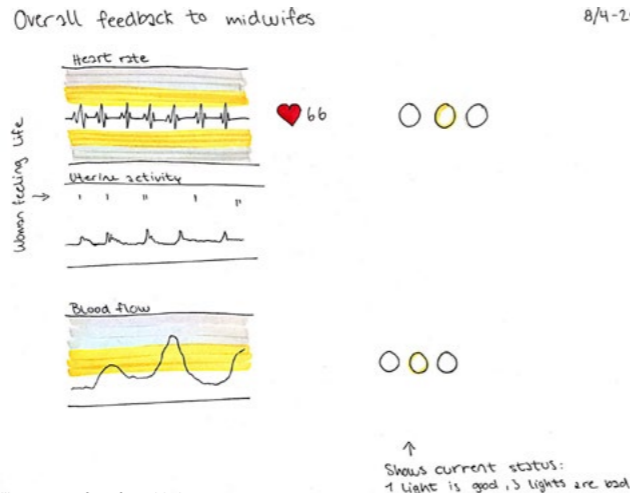 Overall feedback to midwifes
8/4-20
Heart rate
66
Woman feeling life
Uterine activity
Blood flow
Shows current status:
1 light is good, 3 lights are bad